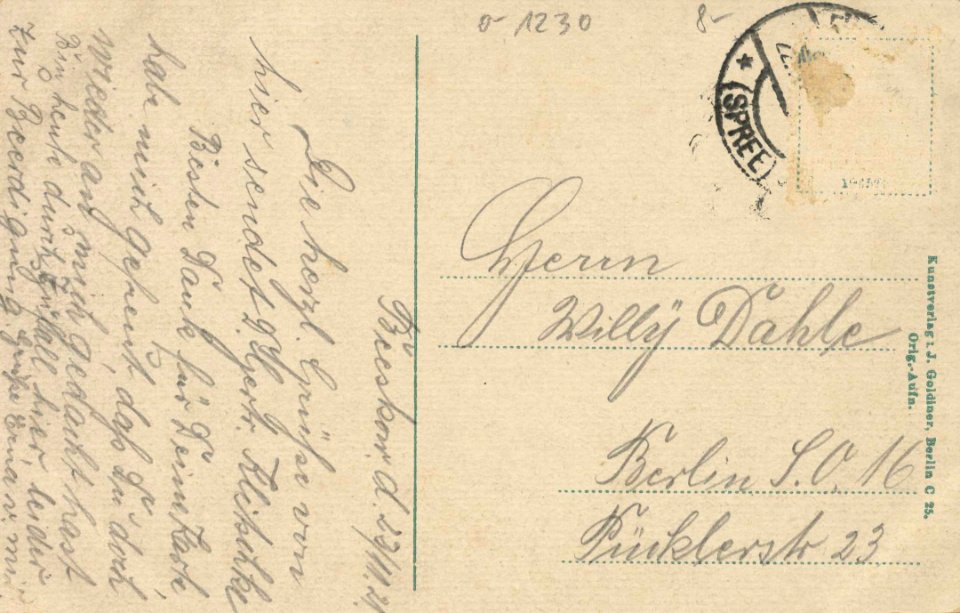 o- 1230
8-
(SPREE)
Beeskow, d. 29/11.21
Die herzl. Grüße von
hier sendet Herr
Besten Dank für Deine Karte
habe mich gefreut, daß Du doch
wieder an mich gedacht hast
Bin heute durch Zufall hier leider
zur Beerdigung. Grüße Erna v. mir
Herrn
Willÿ Dahle
Berlin S.O. 16
Pücklerstr 23
Kunstverlag i. J. Goldiner, Berlin C 25.
Orig.-Aufn.